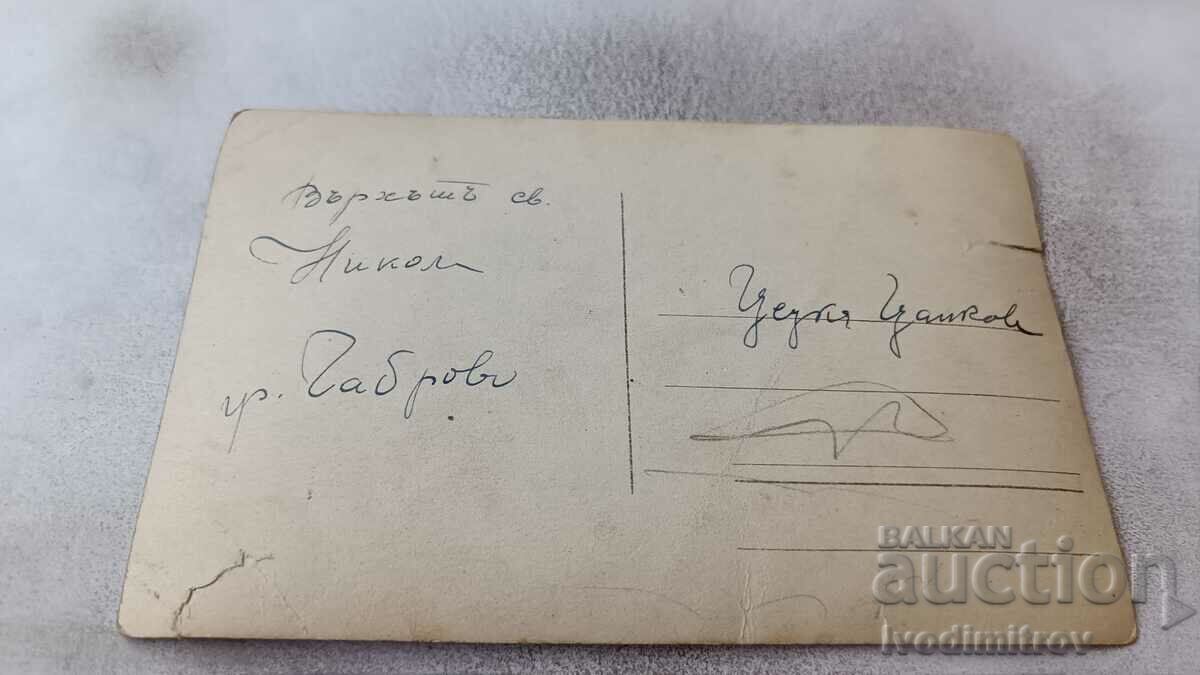 Върхътъ св.
Никола
гр. Габрово
Цецка Цанкова
BALKAN
auction
Ivodimitrov